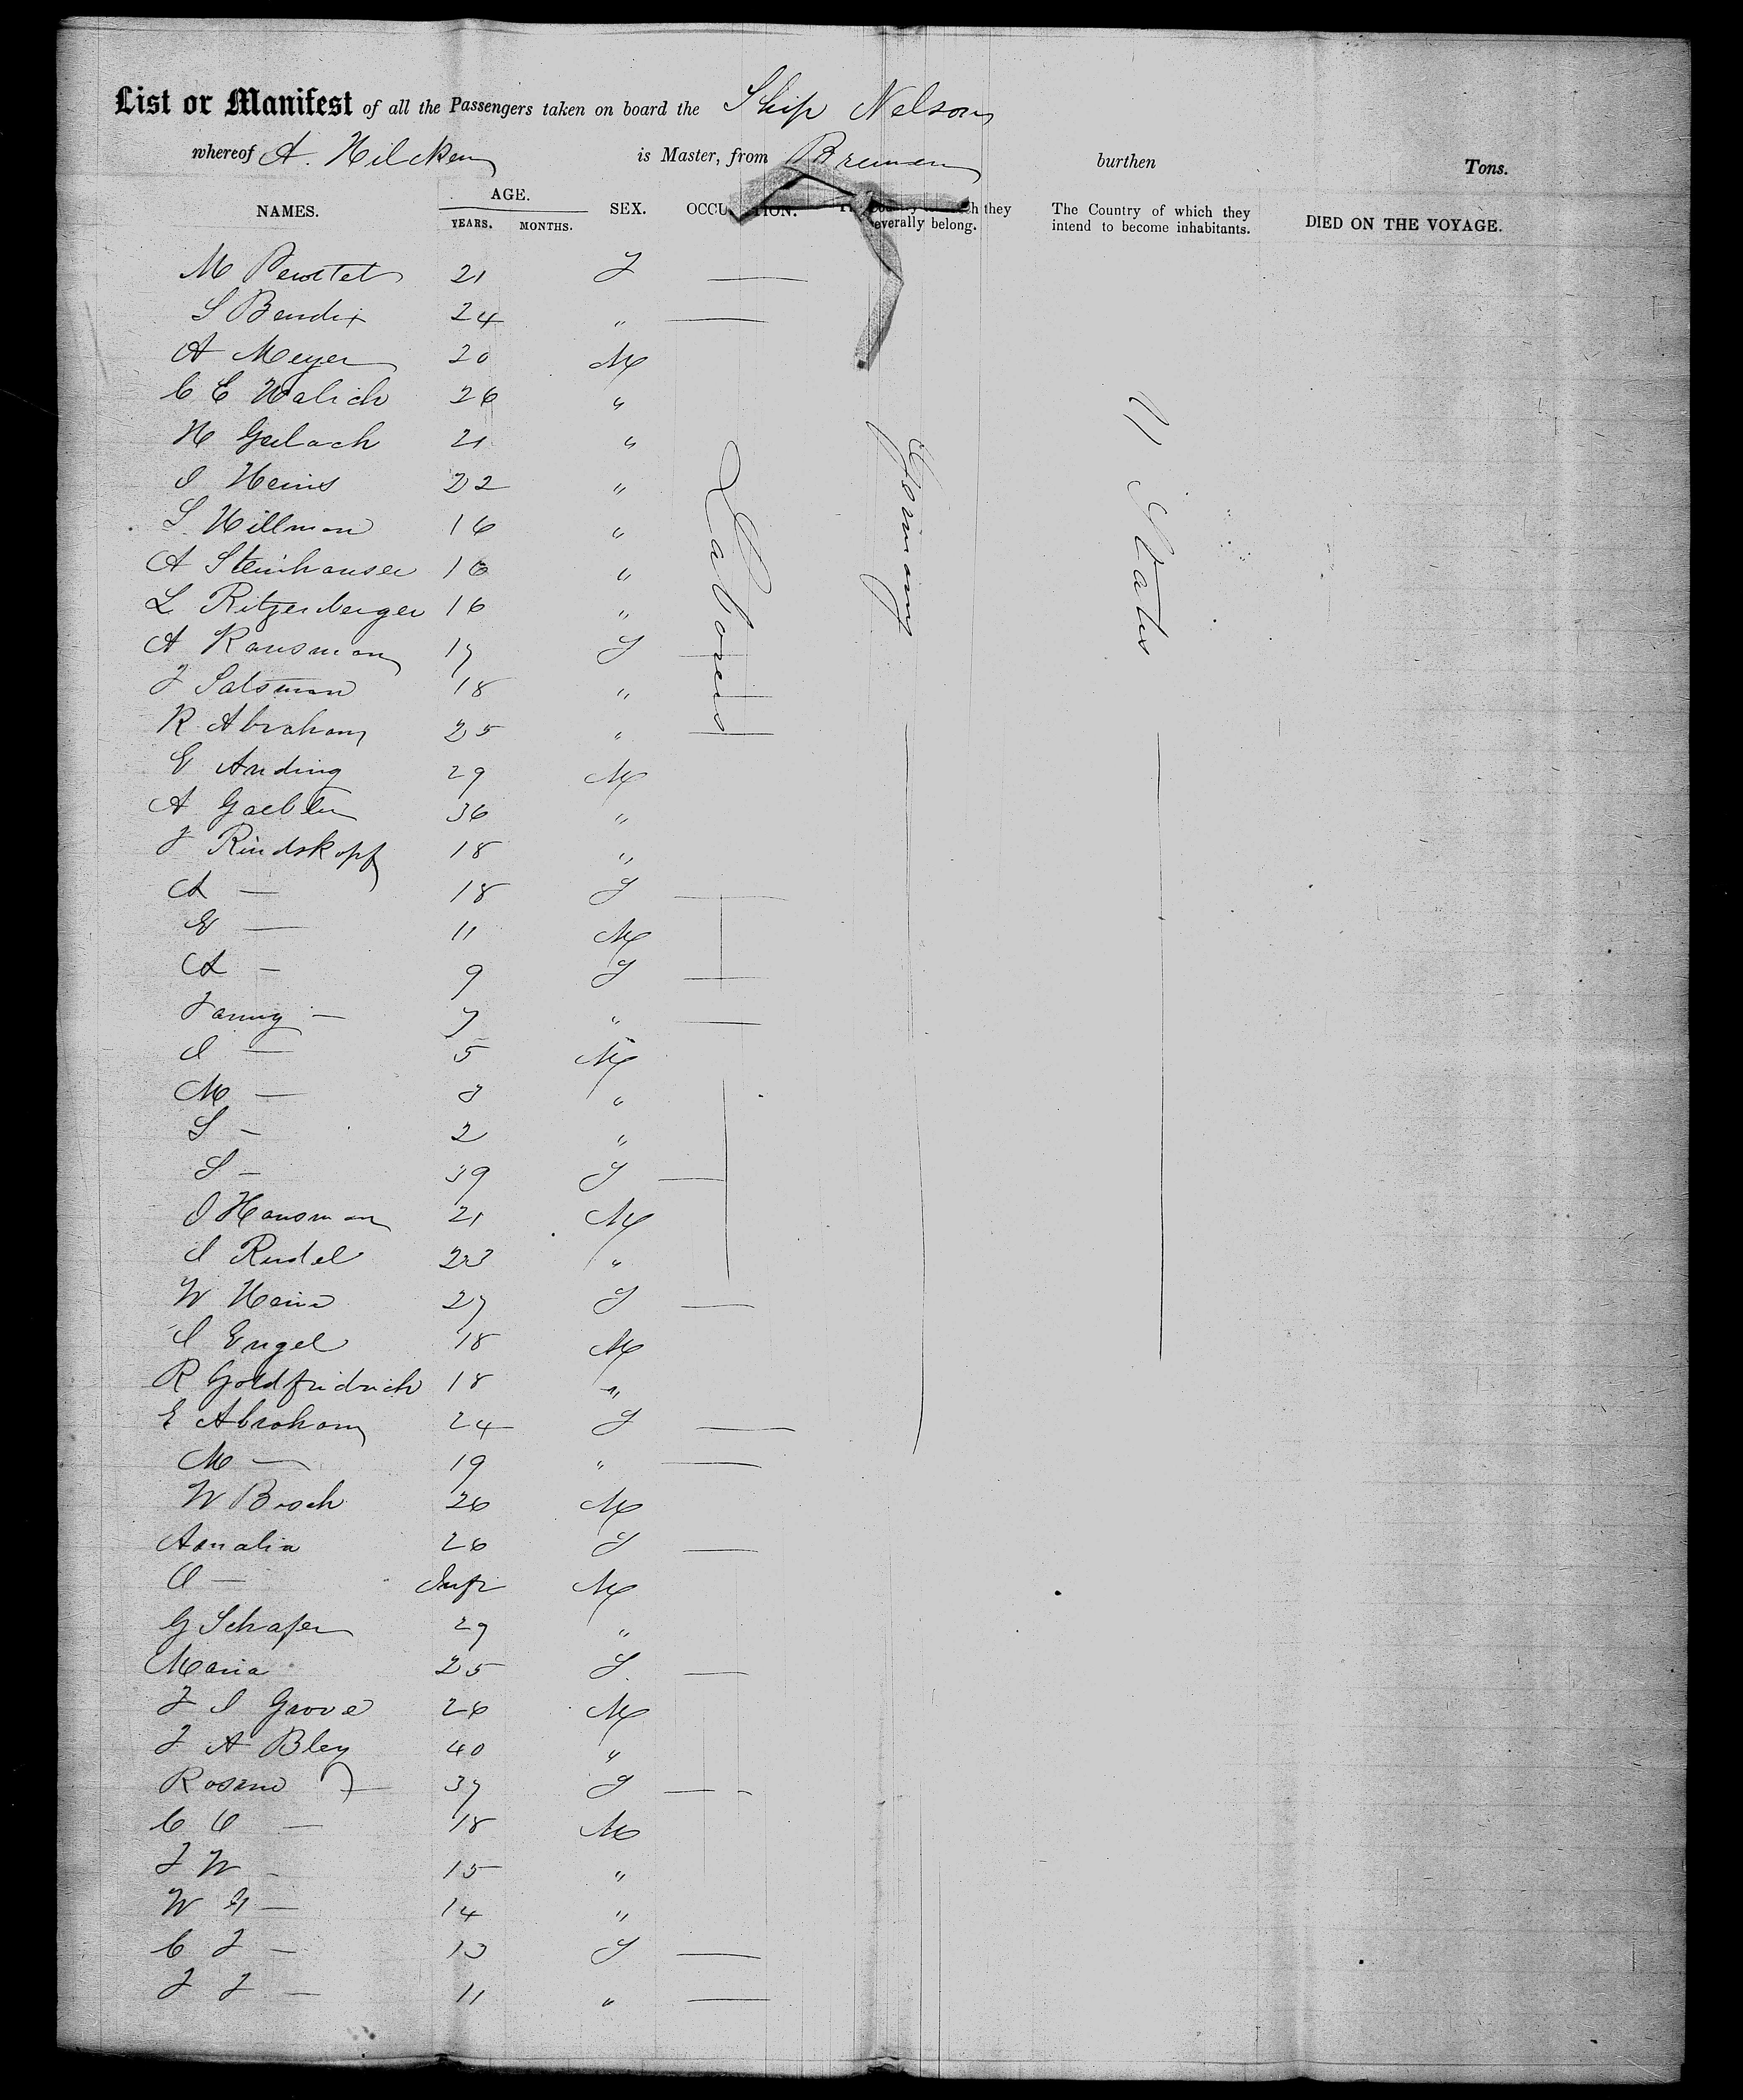 List or Manifest of all the Passengers taken on board the Ship Nelson
whereof A. Hilcken is Master, from Bremen burthen Tons.
NAMES. AGE. YEARS. MONTHS. SEX. OCCUPATION. they severally belong. The Country of which they intend to become inhabitants. DIED ON THE VOYAGE.
Laborers Germany U States
M 21 F —
S Bendix 24 " —
A Meyer 20 M
C E Walich 26 "
H Gerlach 21 "
I Heins 22 "
S. Hillman 16 "
A Steinhauser 16 "
L Ritzenberger 16 "
A Kausman 17 F —
J Salsman 18 " —
R Abraham 25 " —
E Anding 29 M
A Gaebler 36 "
J Rindskopf 18 "
A — 18 F —
E — 11 M
A — 9 F —
Fanny — 7 " —
I — 5 M
M — 3 "
S — 2 "
S — 39 F —
I Hausman 21 M
I Rudel 23 "
W Hein 27 F —
I Engel 18 M
R Goldfridrich 18 "
E Abraham 24 F —
M — 19 " —
W Bosch 26 M
Amalia 26 F —
O — Inft M
G Schafer 29 "
Maria 25 F —
J I Grove 26 M
J A Bley 40 "
Rosine — 37 F —
C O — 18 M
J W — 15 "
W H — 14 "
C J — 13 F —
J J — 11 " —